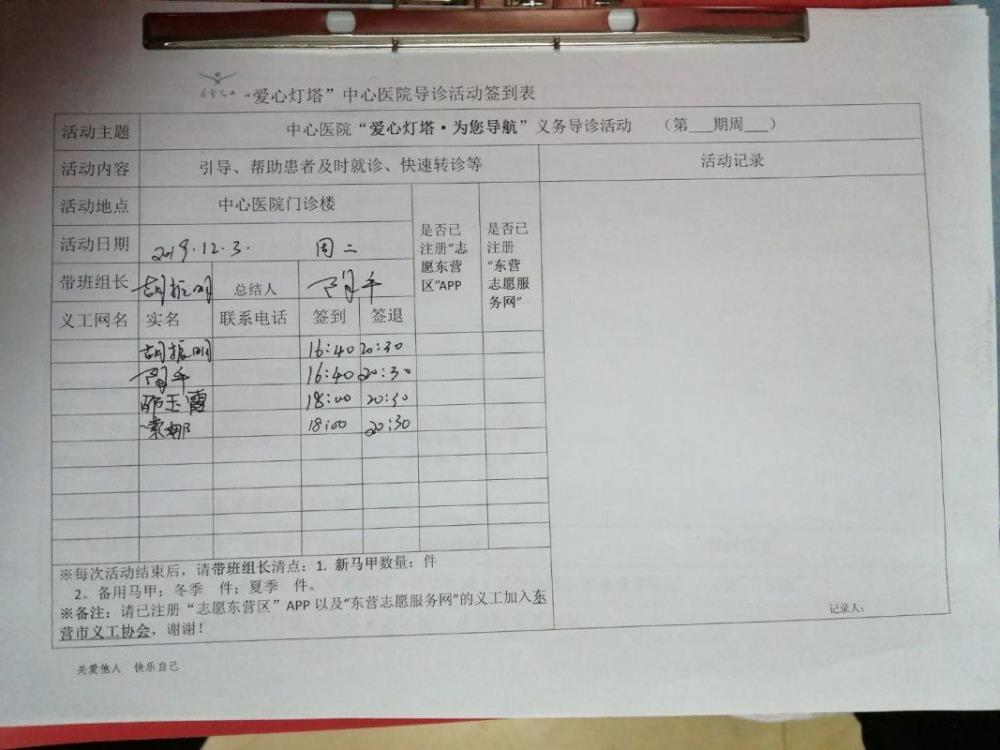 “爱心灯塔”中心医院导诊活动签到表
活动主题 中心医院“爱心灯塔·为您导航”义务导诊活动 （第___期周___）
活动内容 引导、帮助患者及时就诊、快速转诊等 活动记录
活动地点 中心医院门诊楼
是否已注册“志愿东营区”APP
是否已注册“东营志愿服务网”
活动日期 2019.12.3. 周二
带班组长 胡振明 总结人
义工网名 实名 联系电话 签到 签退
胡振明 16:40 20:30
16:40 20:30
邵玉霞 18:00 20:30
索娜 18:00 20:30
※每次活动结束后，请带班组长清点：1. 新马甲数量： 件
2。备用马甲：冬季 件；夏季 件。
※备注：请已注册“志愿东营区”APP 以及“东营志愿服务网”的义工加入东
营市义工协会，谢谢！
记录人：
关爱他人 快乐自己